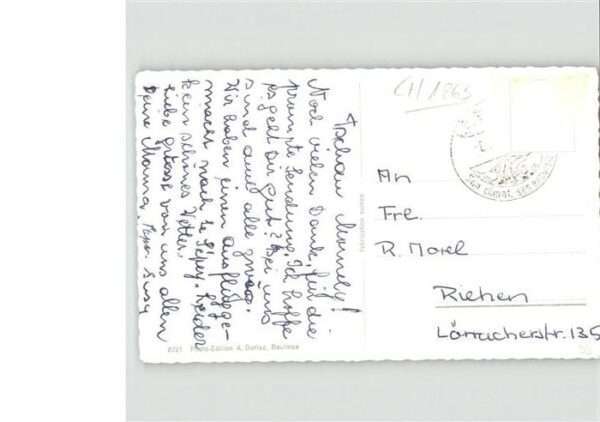 Tschau Mornely!
Noch vielen Dank, für die
prompte Sendung. Ich hoffe
es geht Dir gut? Bei uns
sind auch alle
Wir haben einen Ausflug ge-
macht nach Le Sépey. Leider
kein schönes Wetter.
Liebe grüsse von uns allen
Deine Mama, Papa, Susy
CH 1863
An
Frl.
R. Morel
Riehen
Lörracherstr. 135
8221 Photo-Edition A. Durlac, Baulmes